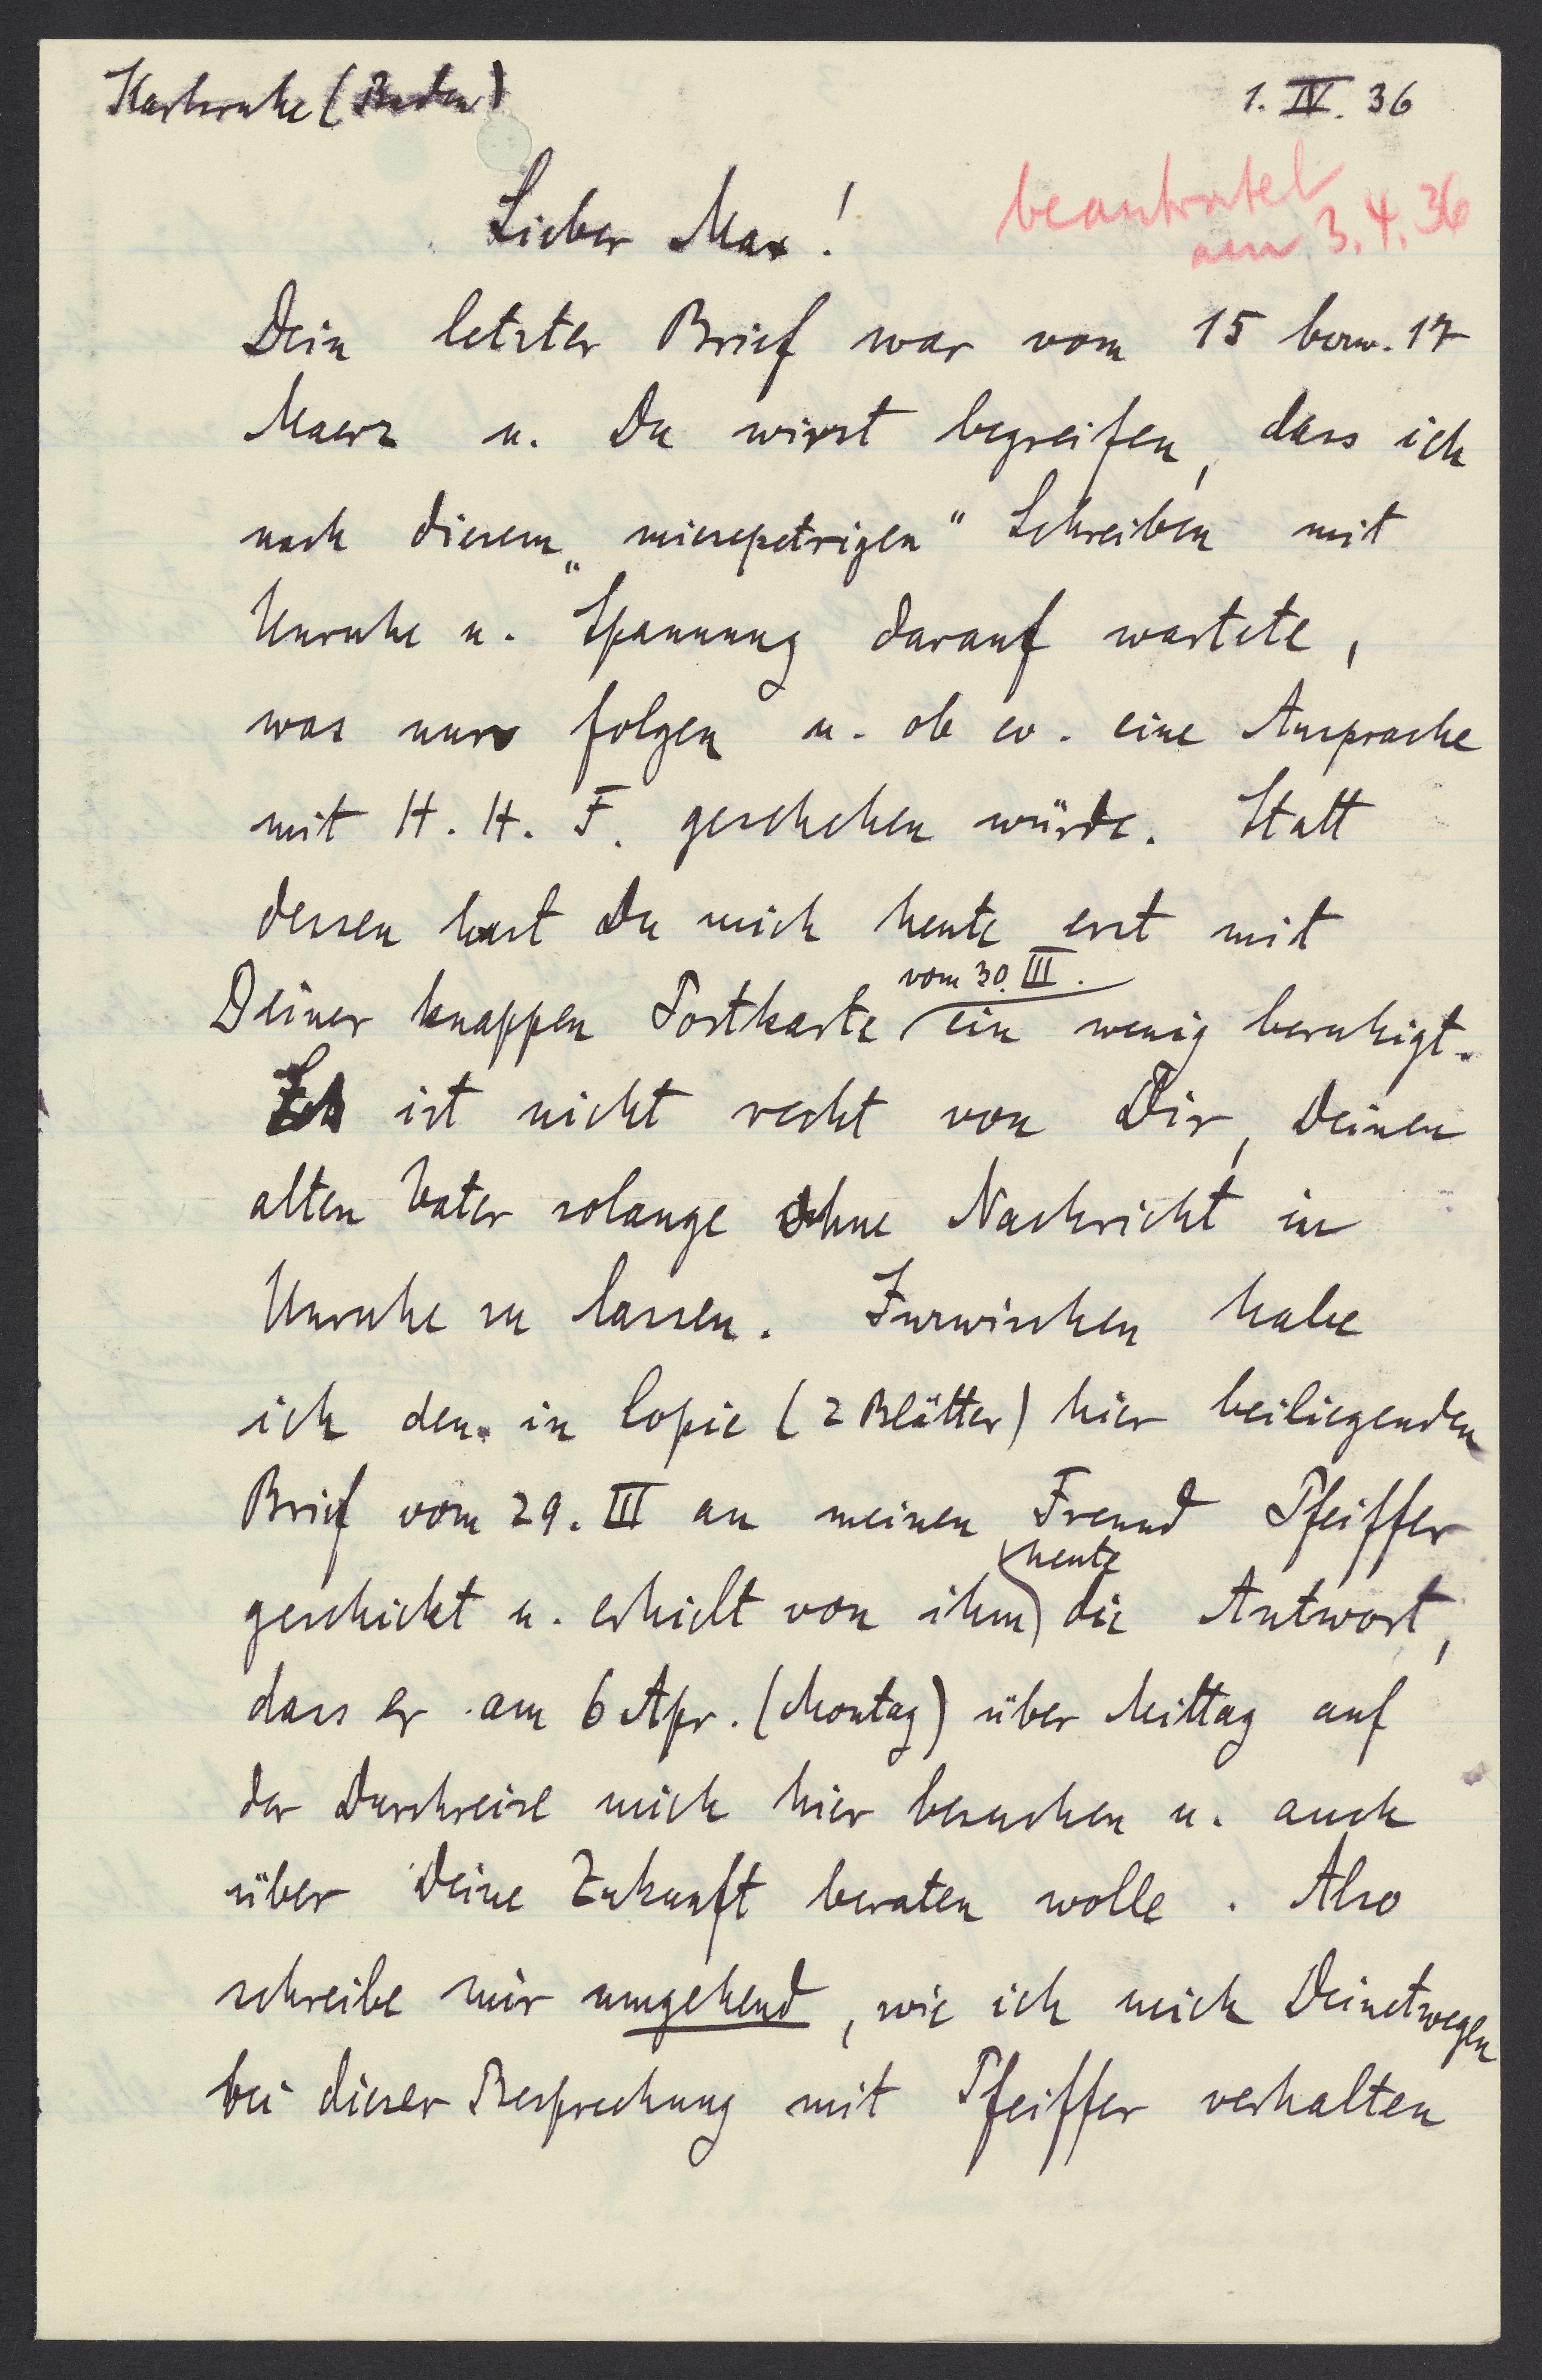 Karlsruhe (Baden)
1. IV. 36
beantwortet
am 3.4.36
Lieber Max!
Dein letzter Brief war vom 15 bezw. 17
Maerz u. Du wirst begreifen, dass ich
nach diesem „miesepetrigen“ Schreiben mit
Unruhe u. Spannung darauf wartete,
was nun folgen u. ob ev. eine Aussprache
mit H. H. F. geschehen würde. Statt
dessen hast Du mich heute erst mit
vom 30. III.
Deiner knappen Postkarte ein wenig beruhigt.
Es ist nicht recht von Dir, Deinen
alten Vater solange ohne Nachricht in
Unruhe zu lassen. Inzwischen habe
ich den in Copie (2 Blätter) hier beiliegenden
Brief vom 29. III an meinen Freund Pfeiffer
heute
geschickt u. erhielt von ihm die Antwort,
dass er am 6 Apr. (Montag) über Mittag auf
der Durchreise mich hier besuchen u. auch
über Deine Zukunft beraten wolle. Also
schreibe mir umgehend, wie ich mich Deinetwegen
bei dieser Besprechung mit Pfeiffer verhalten